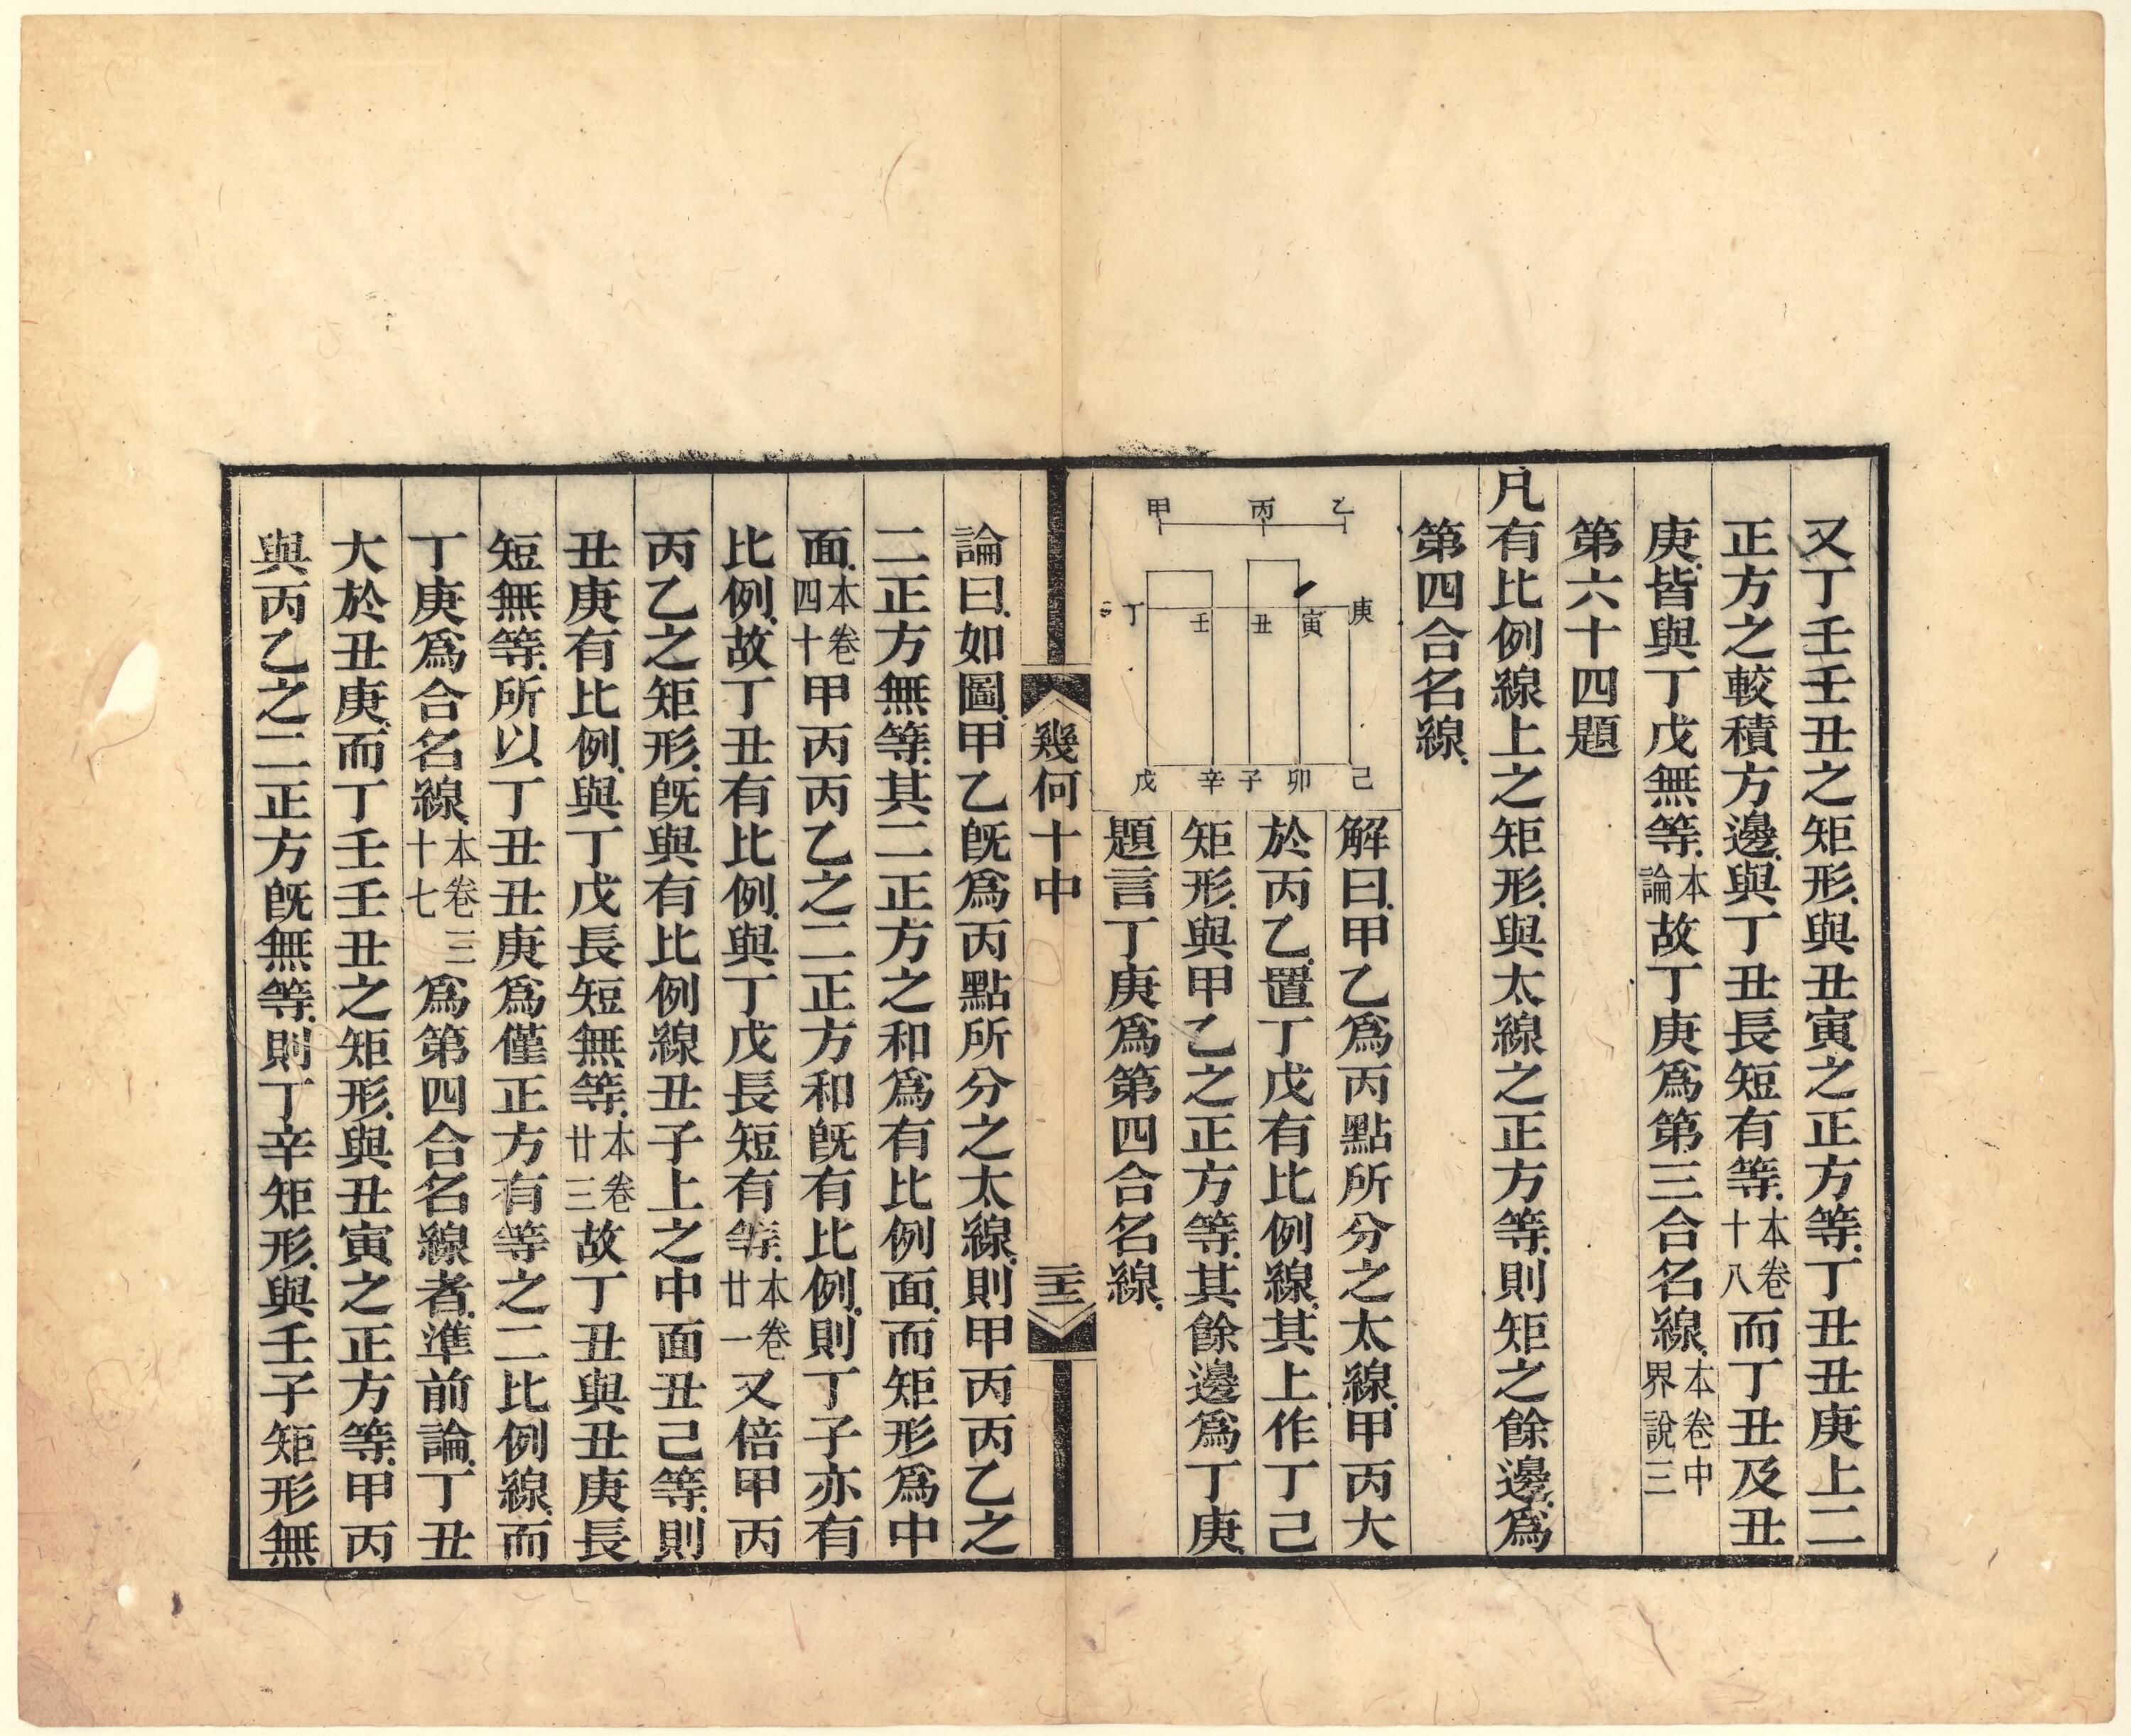 又丁壬壬丑之矩形與丑寅之正方等丁丑丑庚上二
正方之較積方邊與丁丑長短有等本卷十八而丁丑及丑
庚皆與丁戊無等本論故丁庚爲第三合名線本卷中界說三
第六十四題
凡有比例線上之矩形與太線之正方等則矩之餘邊爲
第四合名線
乙
丙
甲
庚
寅
丑
壬
丁
己
卯
子
辛
戊
解曰甲乙爲丙點所分之太線甲丙大
於丙乙置丁戊有比例線其上作丁己
矩形與甲乙之正方等其餘邊爲丁庚
題言丁庚爲第四合名線
幾何十中
論曰如圖甲乙旣爲丙點所分之太線則甲丙丙乙之
二正方無等其二正方之和爲有比例面而矩形爲中
面本卷四十甲丙丙乙之二正方和旣有比例則丁子亦有
比例故丁丑有比例與丁戊長短有等本卷廿一又倍甲丙
丙乙之矩形旣與有比例線丑子上之中面丑己等則
丑庚有比例與丁戊長短無等本卷廿三故丁丑與丑庚長
短無等所以丁丑丑庚爲僅正方有等之二比例線而
丁庚爲合名線本卷三十七爲第四合名線者準前論丁丑
大於丑庚而丁壬壬丑之矩形與丑寅之正方等甲丙
與丙乙之二正方旣無等則丁辛矩形與壬子矩形無